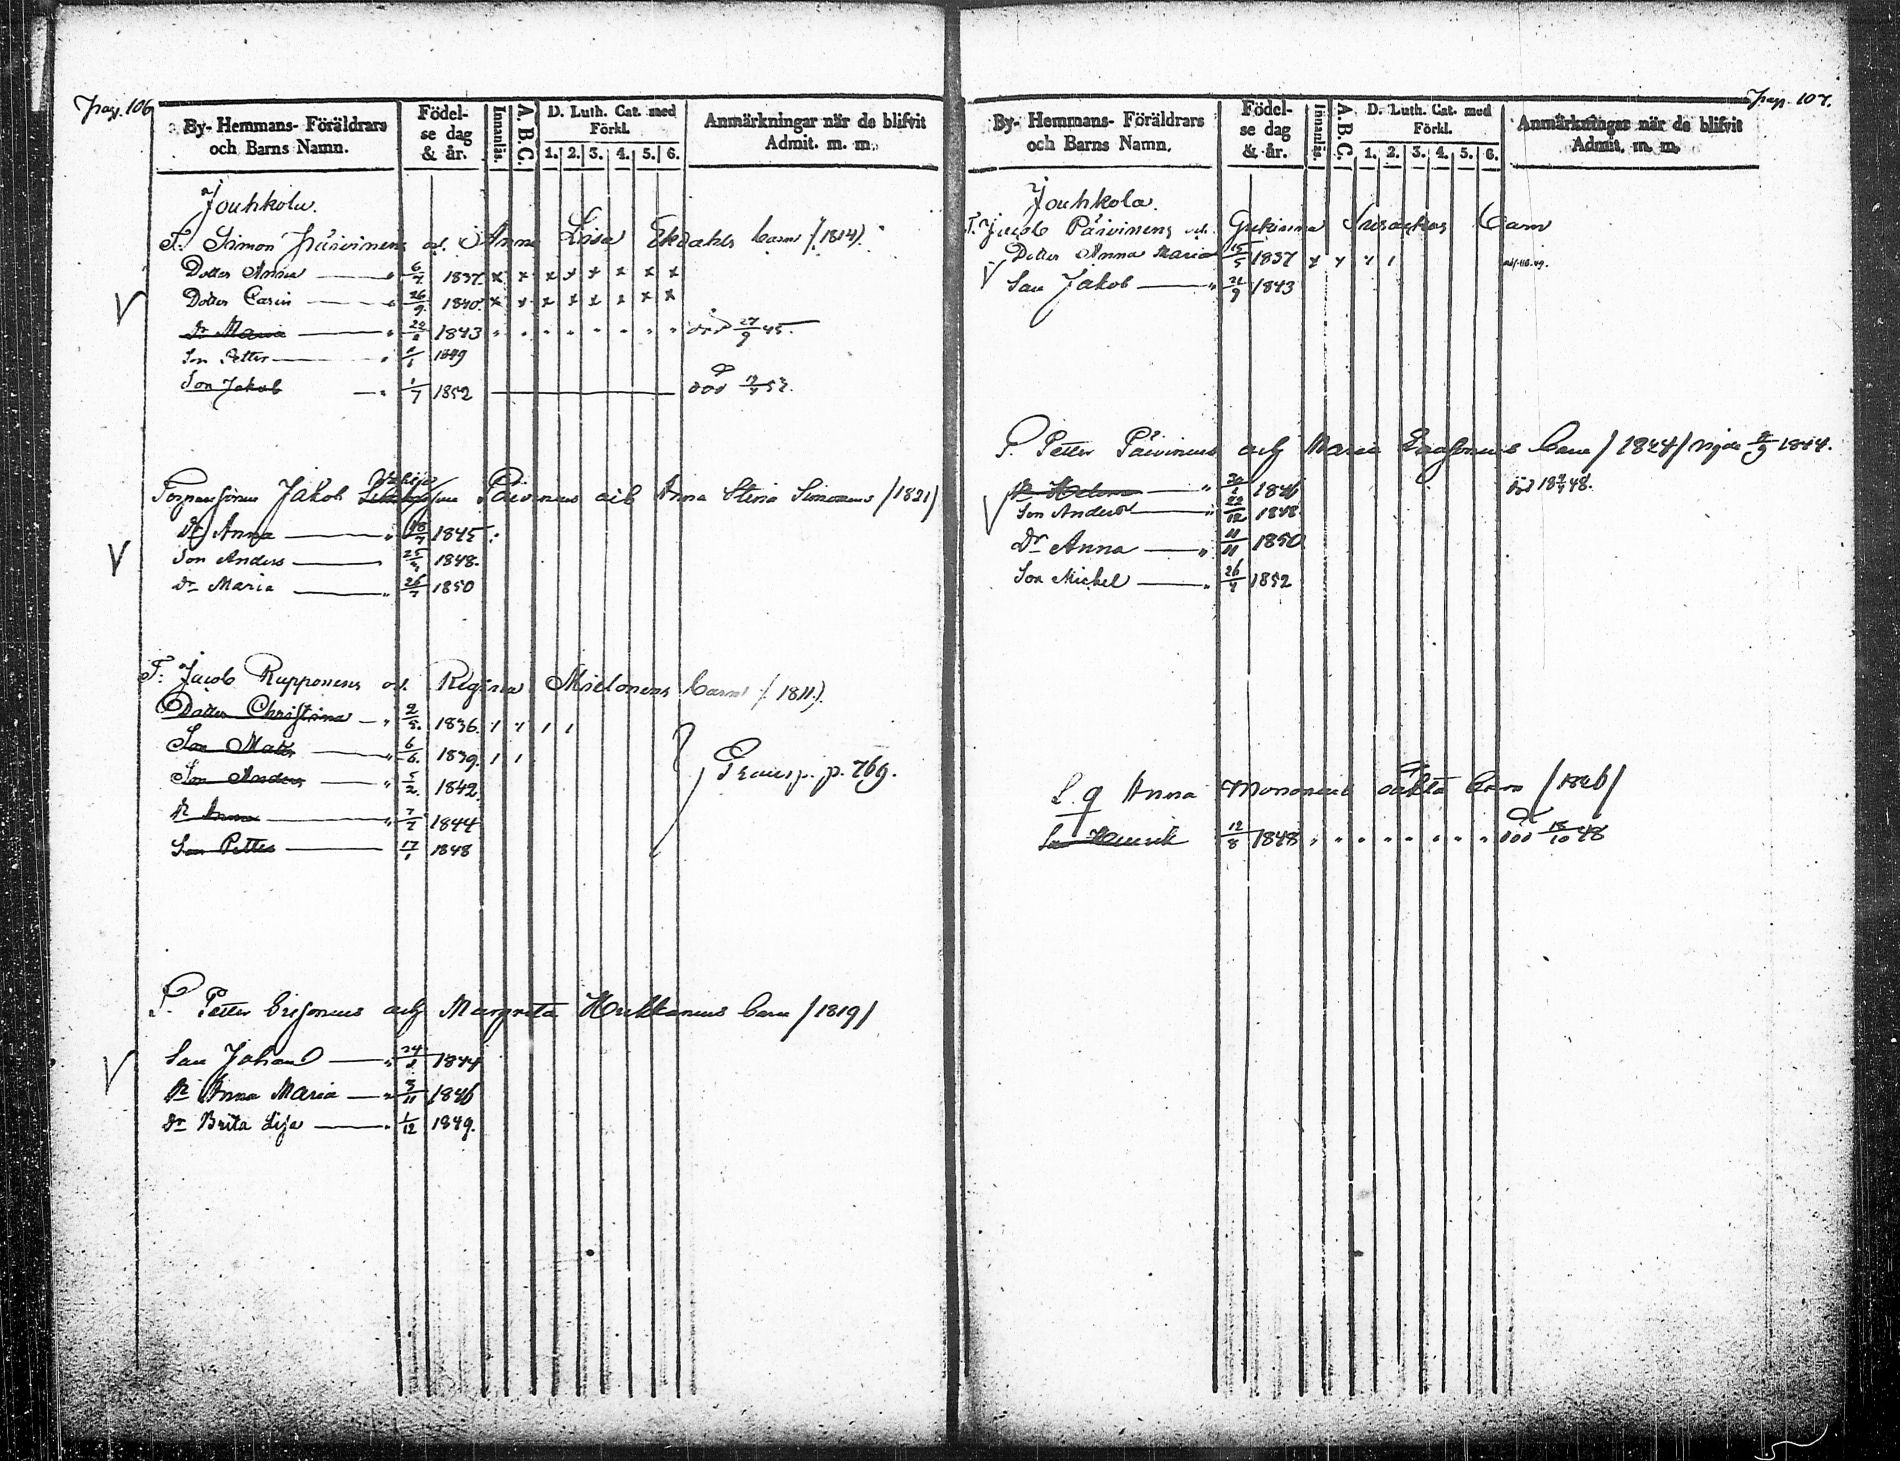 Pag. 106
By- Hemmans- Föräldrars och Barns Namn.
Födel-se dag & år.
Innanläs.
A. B. C.
D. Luth. Cat. med Förkl.
1. 2. 3. 4. 5. 6.
Anmärkningar när de blifvit Admit. m. m.
Jouhkola.
T. Simon Päivinens od. Anna Lisa Ekdahls barn (1814).
Dotter Anna " 6/7 1837. x x x x x x x x
Dotter Carin " 26/9 1840. x x x x x x x x
Dr Maria " 1843 " " " " " " " " död 27/9 45.
Son Petter " 1849
Son Jakob " 1/7 1852 död 53.
Jakob Päivinens och Anna Stina Simonens /1821/
Dr Anna " 1845
Son Anders 1848.
Dr Maria " 26/7 1850
T: Jacob Rupponens od. Regina Mielonens barn (1811).
Dotter Christina " 2/5. 1836.
Son Mats " 6/6. 1839.
Son Anders " 5/2. 1842.
Dr Anna " 7/7 1844
Son Petter 17/1 1848
Transp. p. 769.
Petter Ersonens och Margreta Hukkanens barn /1819/
Son Johan " 1844
Dr Anna Maria " 3/11 1846
Dr Brita Lisa " 1/12 1849.
Pag. 107.
By- Hemmans- Föräldrars och Barns Namn.
Födel-se dag & år.
Innanläs.
A. B. C.
D. Luth. Cat. med Förkl.
1. 2. 3. 4. 5. 6.
Anmärkningar när de blifvit Admit. m. m.
Jouhkola.
T. Jacob Päivinens od. barn
Dotter Anna Maria 15/5 1837
Son Jakob " 21/9 1843
Petter Päivinens och Maria barn /1824/ 1844.
Dr Helena " 1846 död 48.
Son Anders " 22/12 1848
Dr Anna " 11/11 1850
Son Michel " 1852
L. q Anna Mononens oäkta barn /1826/
Son Henrik 12/8 1848 " " " " " " " " död 18/10 48